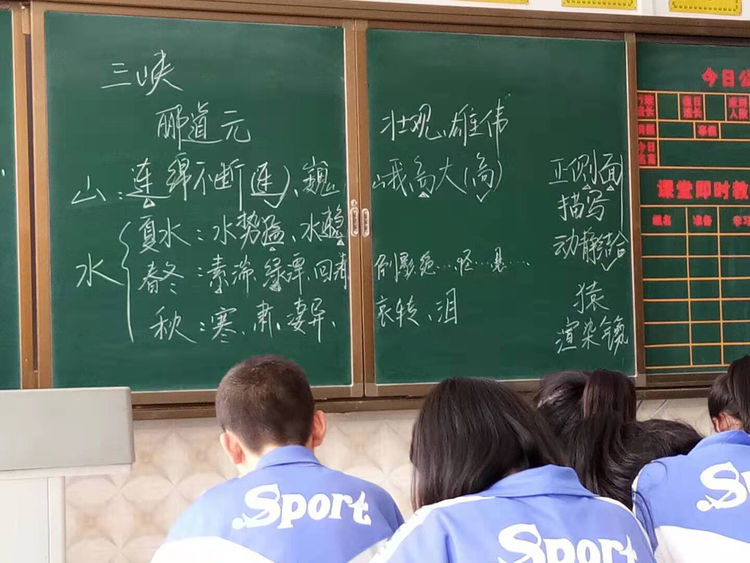 三峡
郦道元
壮观、雄伟
山：连绵不断(连)、巍峨高大(高)
水
夏水：水势猛、水
春冬：素湍、绿潭、回清 倒影 绝……怪……悬……
秋：寒、肃、凄异、哀转、泪
正侧面
描写
动静结合
猿
渲染
今日公
课堂即时教
组名 准备 学习
Sport
Sport
Sport